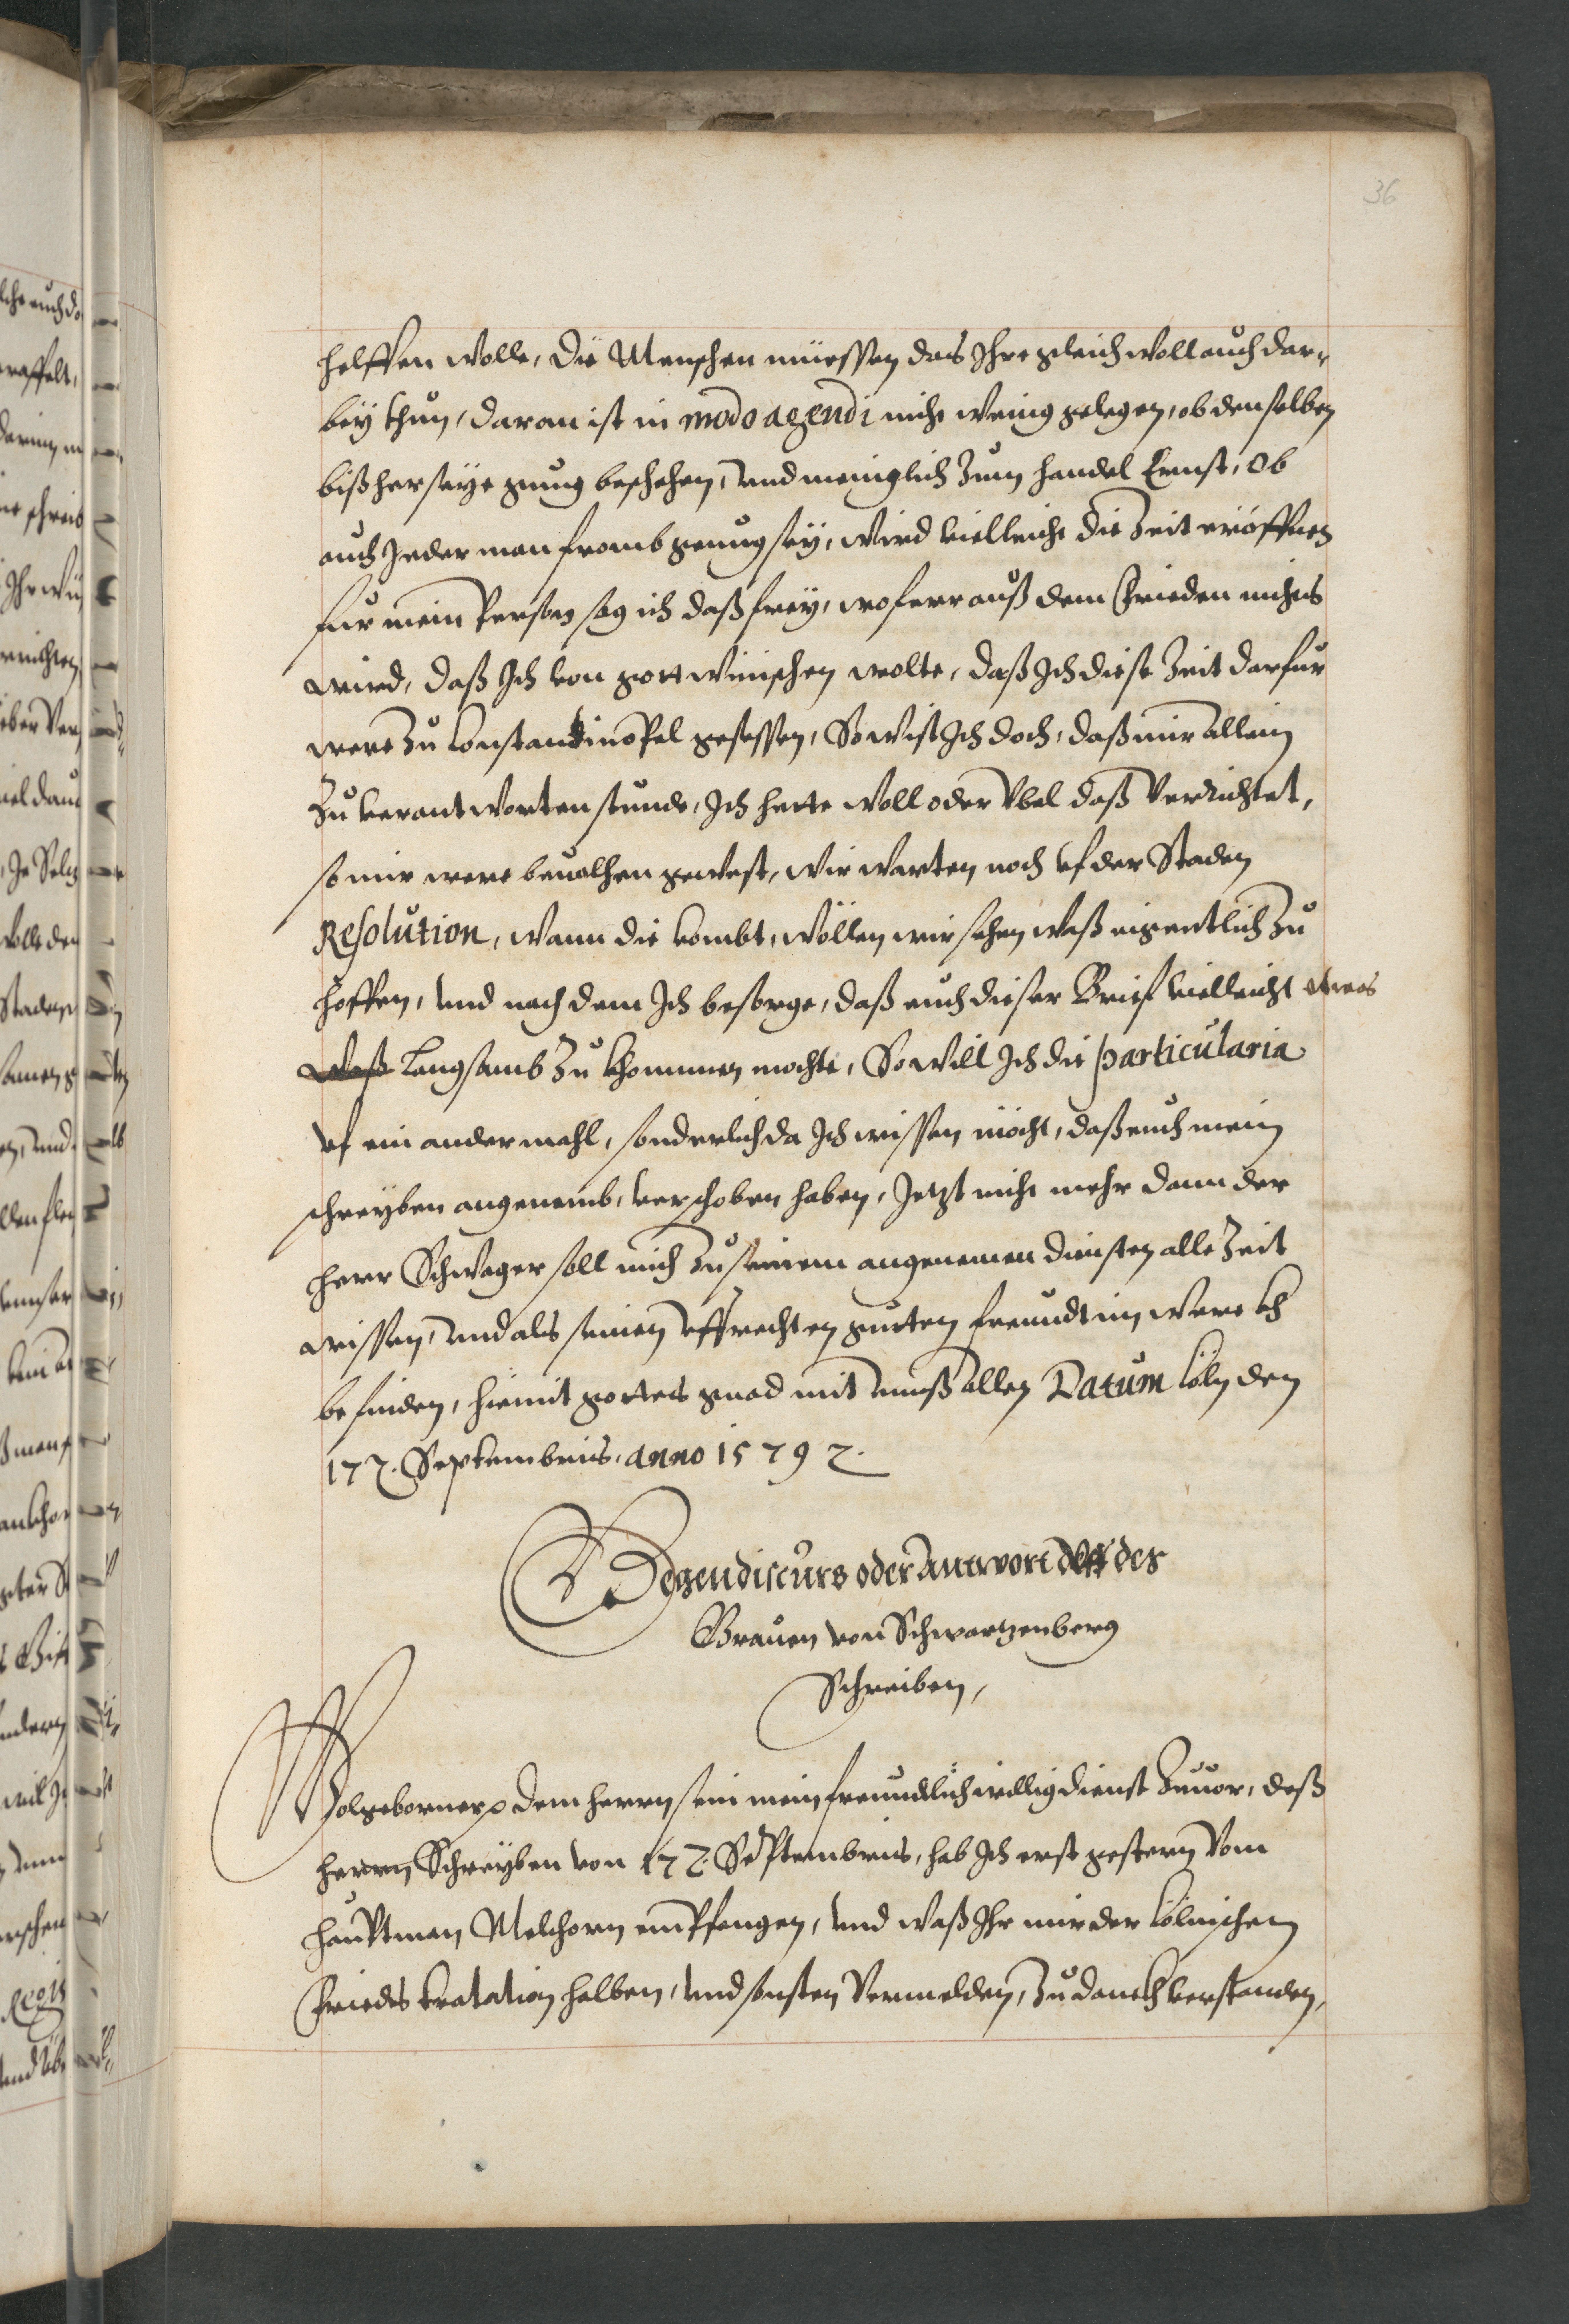 36
helffen wolle, die Menschen müessen das Ihre gleich woll auch dar-
bey thun, daran ist in modo agendi nicht wenig gelegen, ob denselben
bißher seye gnug beschehen, und meniglich zum handel Ernst, Ob
auch Jederman fromb genug sey, wird vielleicht die Zeit eröffnen
für mein Person sag ich daß frey, wo ferr auß dem Frieden nichts
wird, daß Ich von gott wünschen wolte, daß Ich diese Zeit darfür
were zu Constantinopel gesessen, So wist Ich doch, daß mir allein
zu verantworten stunde, Ich hette woll oder Vbel daß Verrichtet,
so mir were beuolhen gewest, wir warten noch vf der Staden
Resolution, wann die kombt, wöllen wir sehen waß eigentlich zu
hoffen, und nach dem Ich besorge, daß euch dieser Brief vielleicht etwas
waß langsamb zu khommen mochte, So will Ich die particularia
vf ein ander mahl, sonderlich da Ich wissen möcht, daß euch mein
schreyben angenemb, verschoben haben, Jetzt nicht mehr dann der
herr Schwager soll mich zu seinem angenemen diensten alle Zeit
wissen, und als seinen vffrechten gutten freundt im werckh
befinden, hiemit gottes gnad mit unß allen Datum Cöln den
17 7. Septembris, anno 1579 7.
Gegendiscurs oder Antwort des
Grauen von Schwartzenberg
Schreiben,
Wolgeborner dem herrn sein mein freundtlich willig dienst zuuor, deß
herrn Schreyben von 17 7. Septembris, hab Ich erst gestern Vom
hauptman Melchorn empfangen, und waß Ihr mir der Cölnischen
Friedts tratation halben, und sonsten Vermelden, zu danckh verstanden,